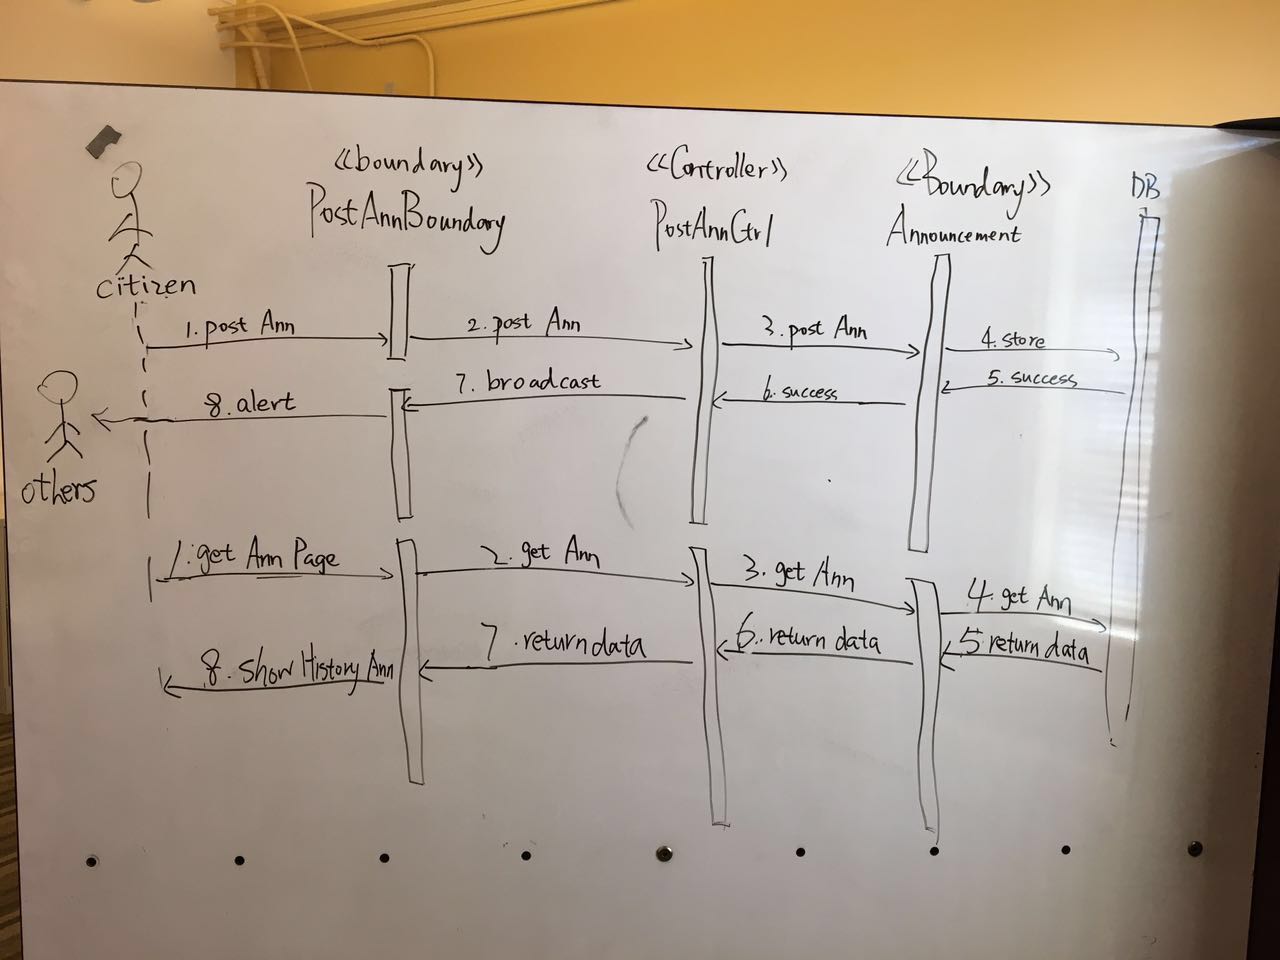 <<boundary>>
PostAnnBoundary
<<Controller>>
PostAnnCtrl
<<Boundary>>
Announcement
DB
citizen
others
1. post Ann
2. post Ann
3. post Ann
4. store
5. success
6. success
7. broadcast
8. alert
1. get Ann Page
2. get Ann
3. get Ann
4. get Ann
5 return data
6. return data
7. return data
8. show History Ann